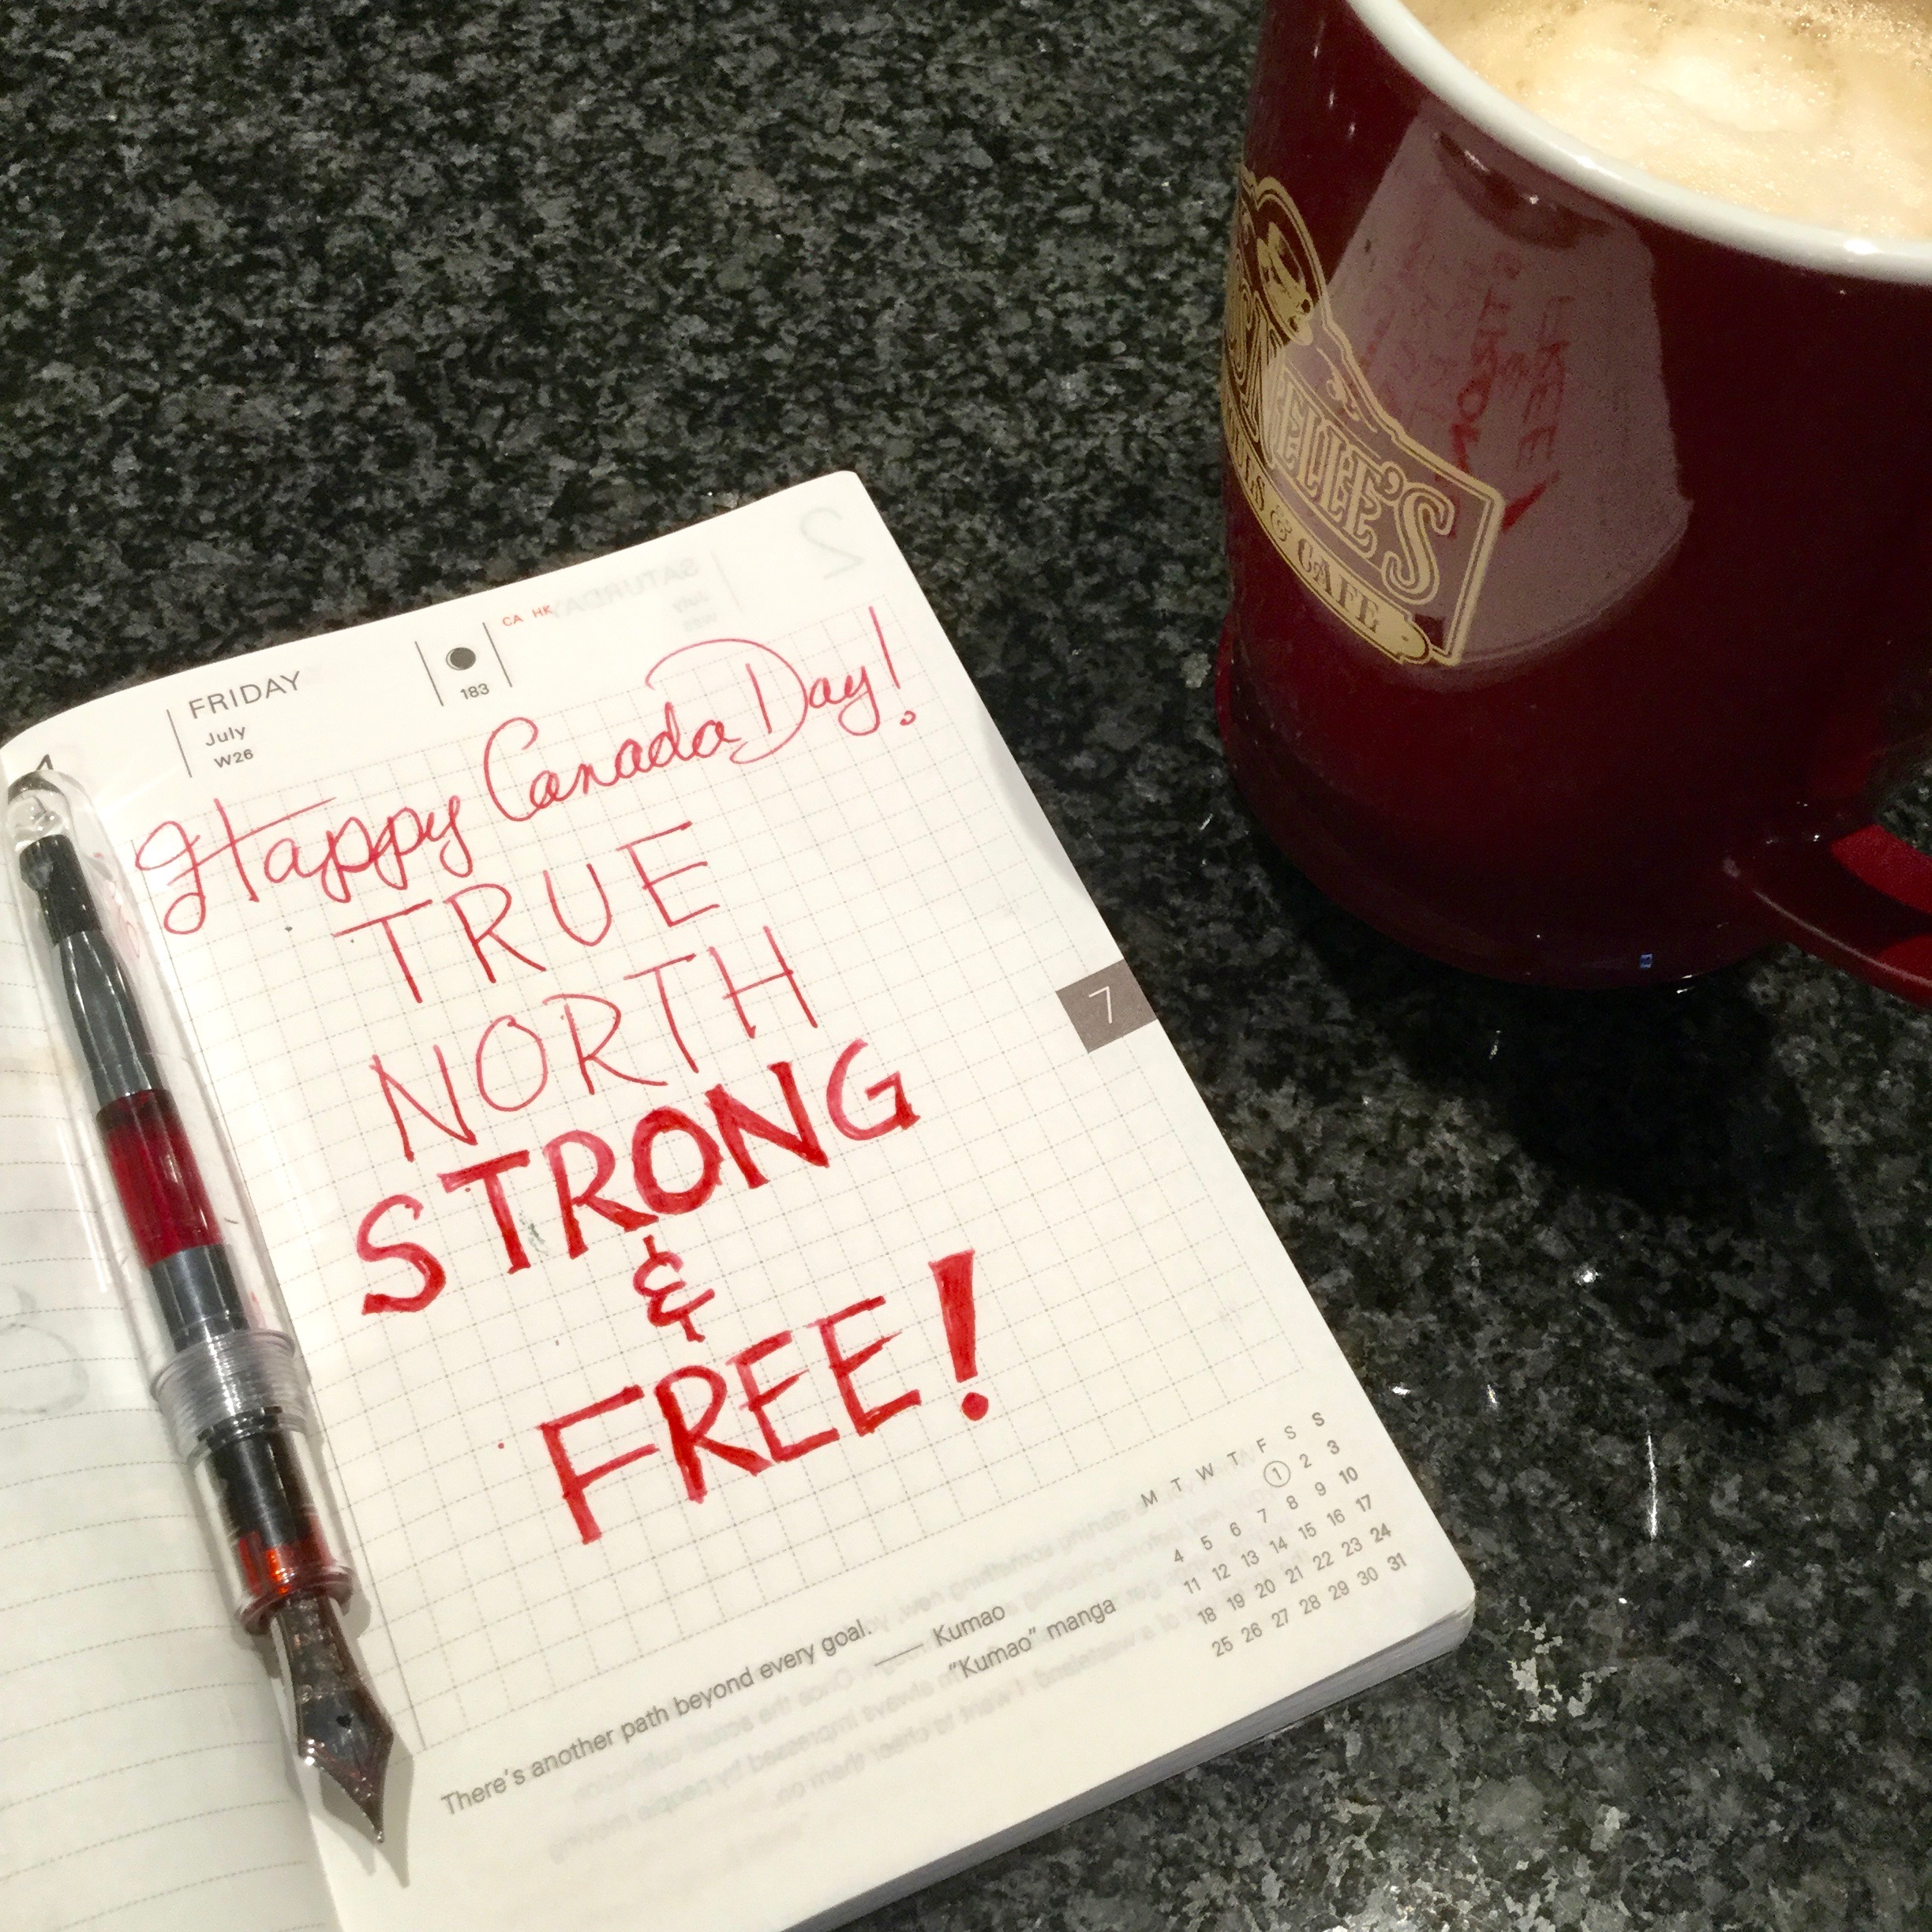 FRIDAY
July
W26
183
CA HK
Happy Canada Day!
TRUE
NORTH
STRONG
&
FREE!
7
M T W T F S S
1 2 3
4 5 6 7 8 9 10
11 12 13 14 15 16 17
18 19 20 21 22 23 24
25 26 27 28 29 30 31
There's another path beyond every goal.
Kumao
"Kumao" manga
2
SATURDAY
July
& CAFE